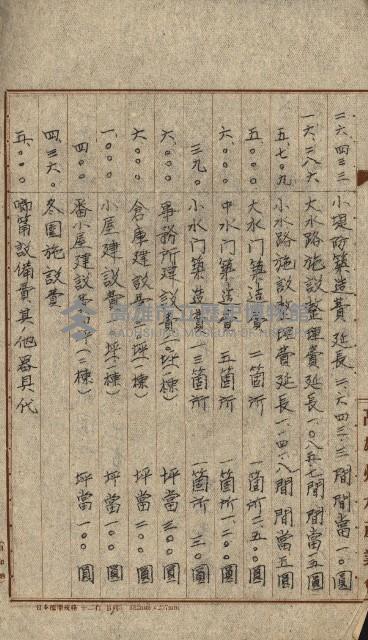 二六、四三三 小堤防築造費 延長二、六四三、三間 間當一〇圓
一六、二八六 大水路施設整理費 延長一、〇八五、七間 間當一五圓
五、七〇九 小水路施設整理費 延長一、一四一、八間 間當五圓
五、〇〇〇 大水門築造費 二箇所 一箇所二、五〇〇圓
六、〇〇〇 中水門築造費 五箇所 一箇所一、二〇〇圓
三九〇 小水門築造費 一三箇所 一箇所三〇圓
六、〇〇〇 事務所建設費 二〇坪(一棟) 坪當三〇〇圓
六、〇〇〇 倉庫建設費 三〇坪(一棟) 坪當二〇〇圓
一、〇〇〇 小屋建設費 一〇坪(一棟) 坪當一〇〇圓
四〇〇 番小屋建設費 (二棟) 坪當一〇〇圓
四、三六〇 冬圍施設費
五、〇〇〇 喞筩設備費其ノ他器具代
高雄市立歷史博物館
KAOHSIUNG MUSEUM OF HISTORY